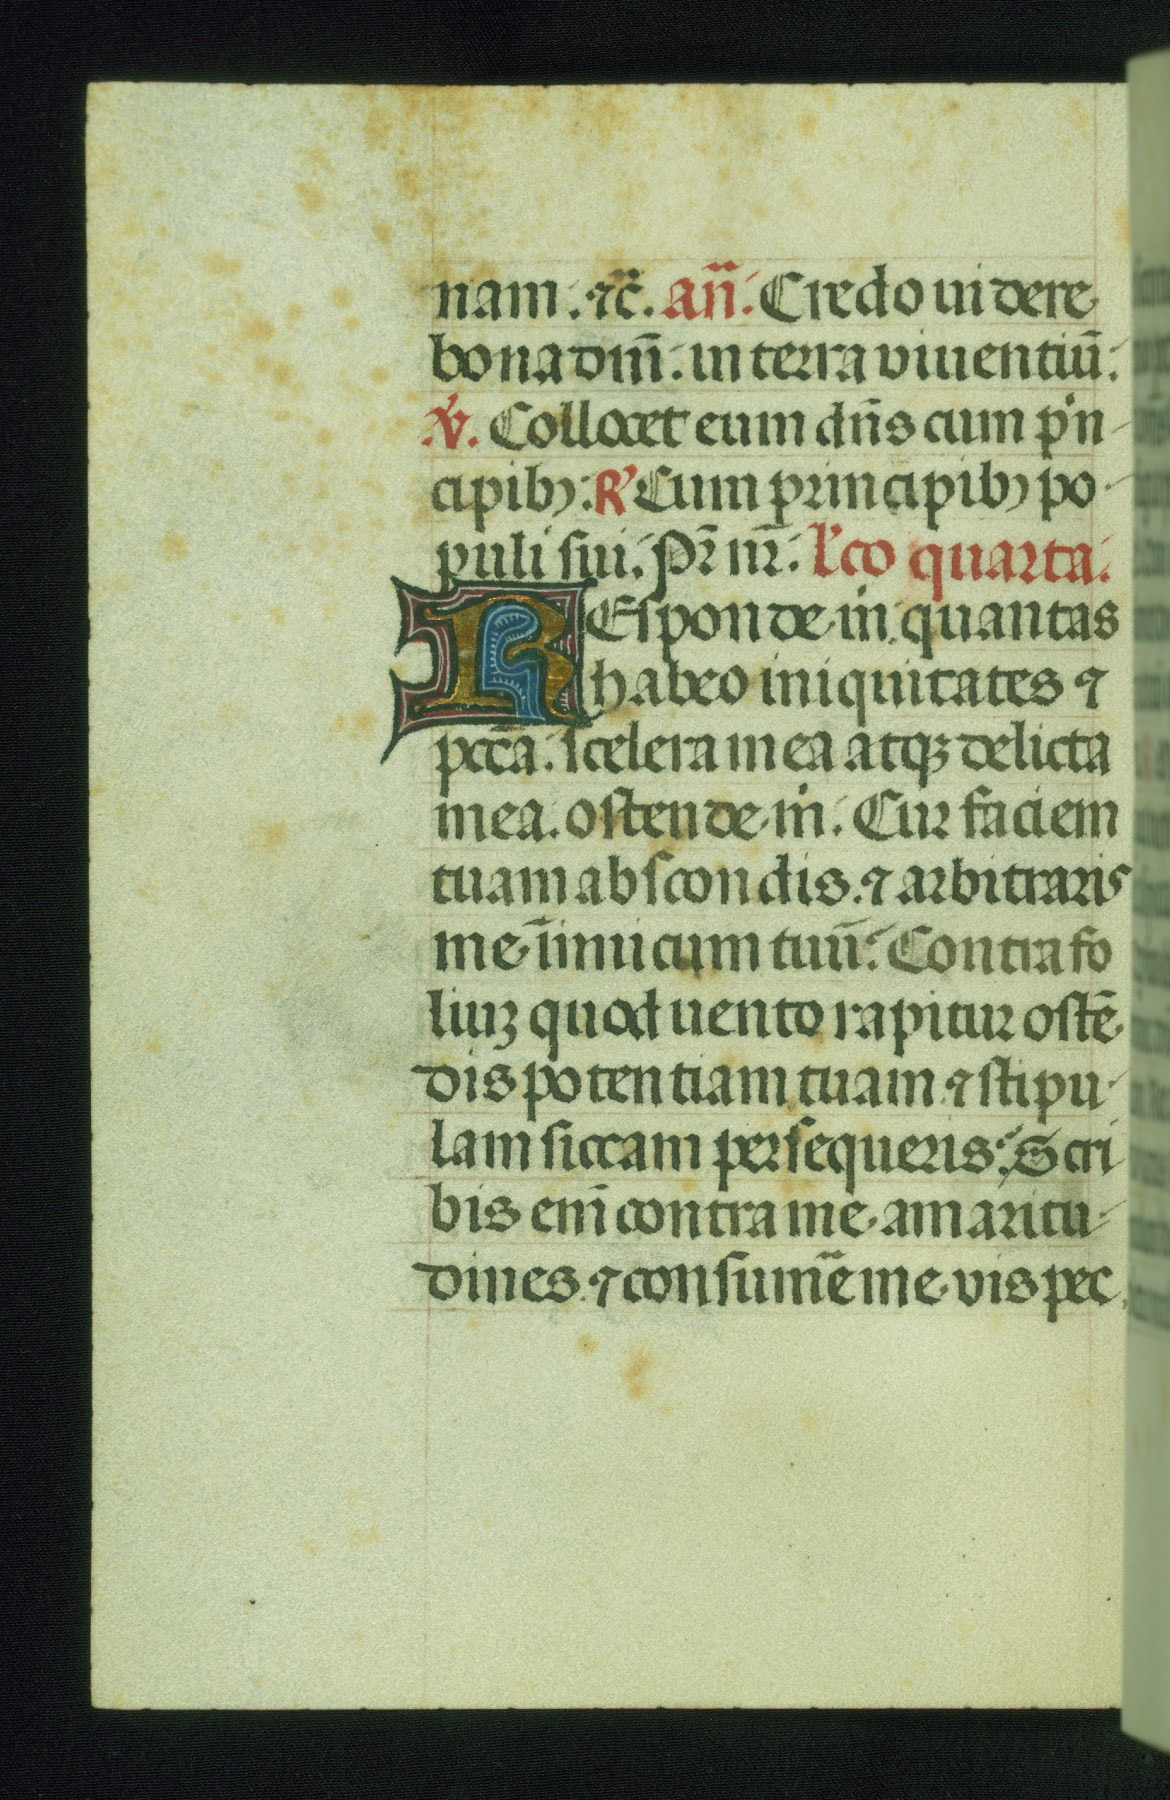 nam. ⁊c̄. an̄. Credo uidere
bona dn̄i. in terra viuentiū.
℣. Collocet eum dn̄s cum pⁱn
cipibꝫ. ℟ Cum principibꝫ po
puli sui. Pr̄ nr̄. lc̄o quarta.
REsponde m̄ quantas
habeo iniquitates ⁊
pcc̄a. scelera mea atqꝫ delicta
mea. ostende m̄. Cur faciem
tuam abscondis. ⁊ arbitraris
me īimicum tuū. Contra fo
liuꝫ quod uento rapitur ostē
dis potentiam tuam ⁊ stipu
lam siccam persequeris. Scri
bis em̄ contra me amaritu
dines ⁊ consumē me vis pec